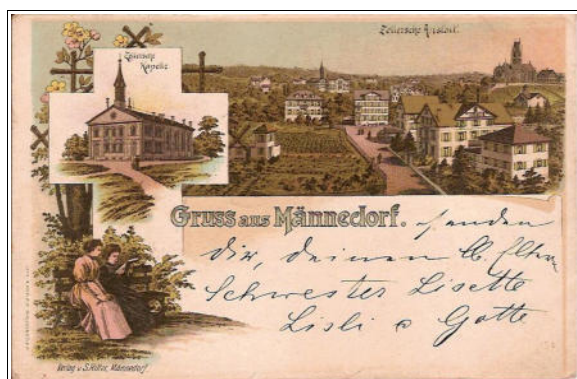 Zellersche Anstalt.
Zellersche
Kapelle
Gruss aus Männedorf. senden
dir, deinen lb. Eltern
Schwester Lisette
Lisli & Gotte
Verlag v. S. Ritter, Männedorf